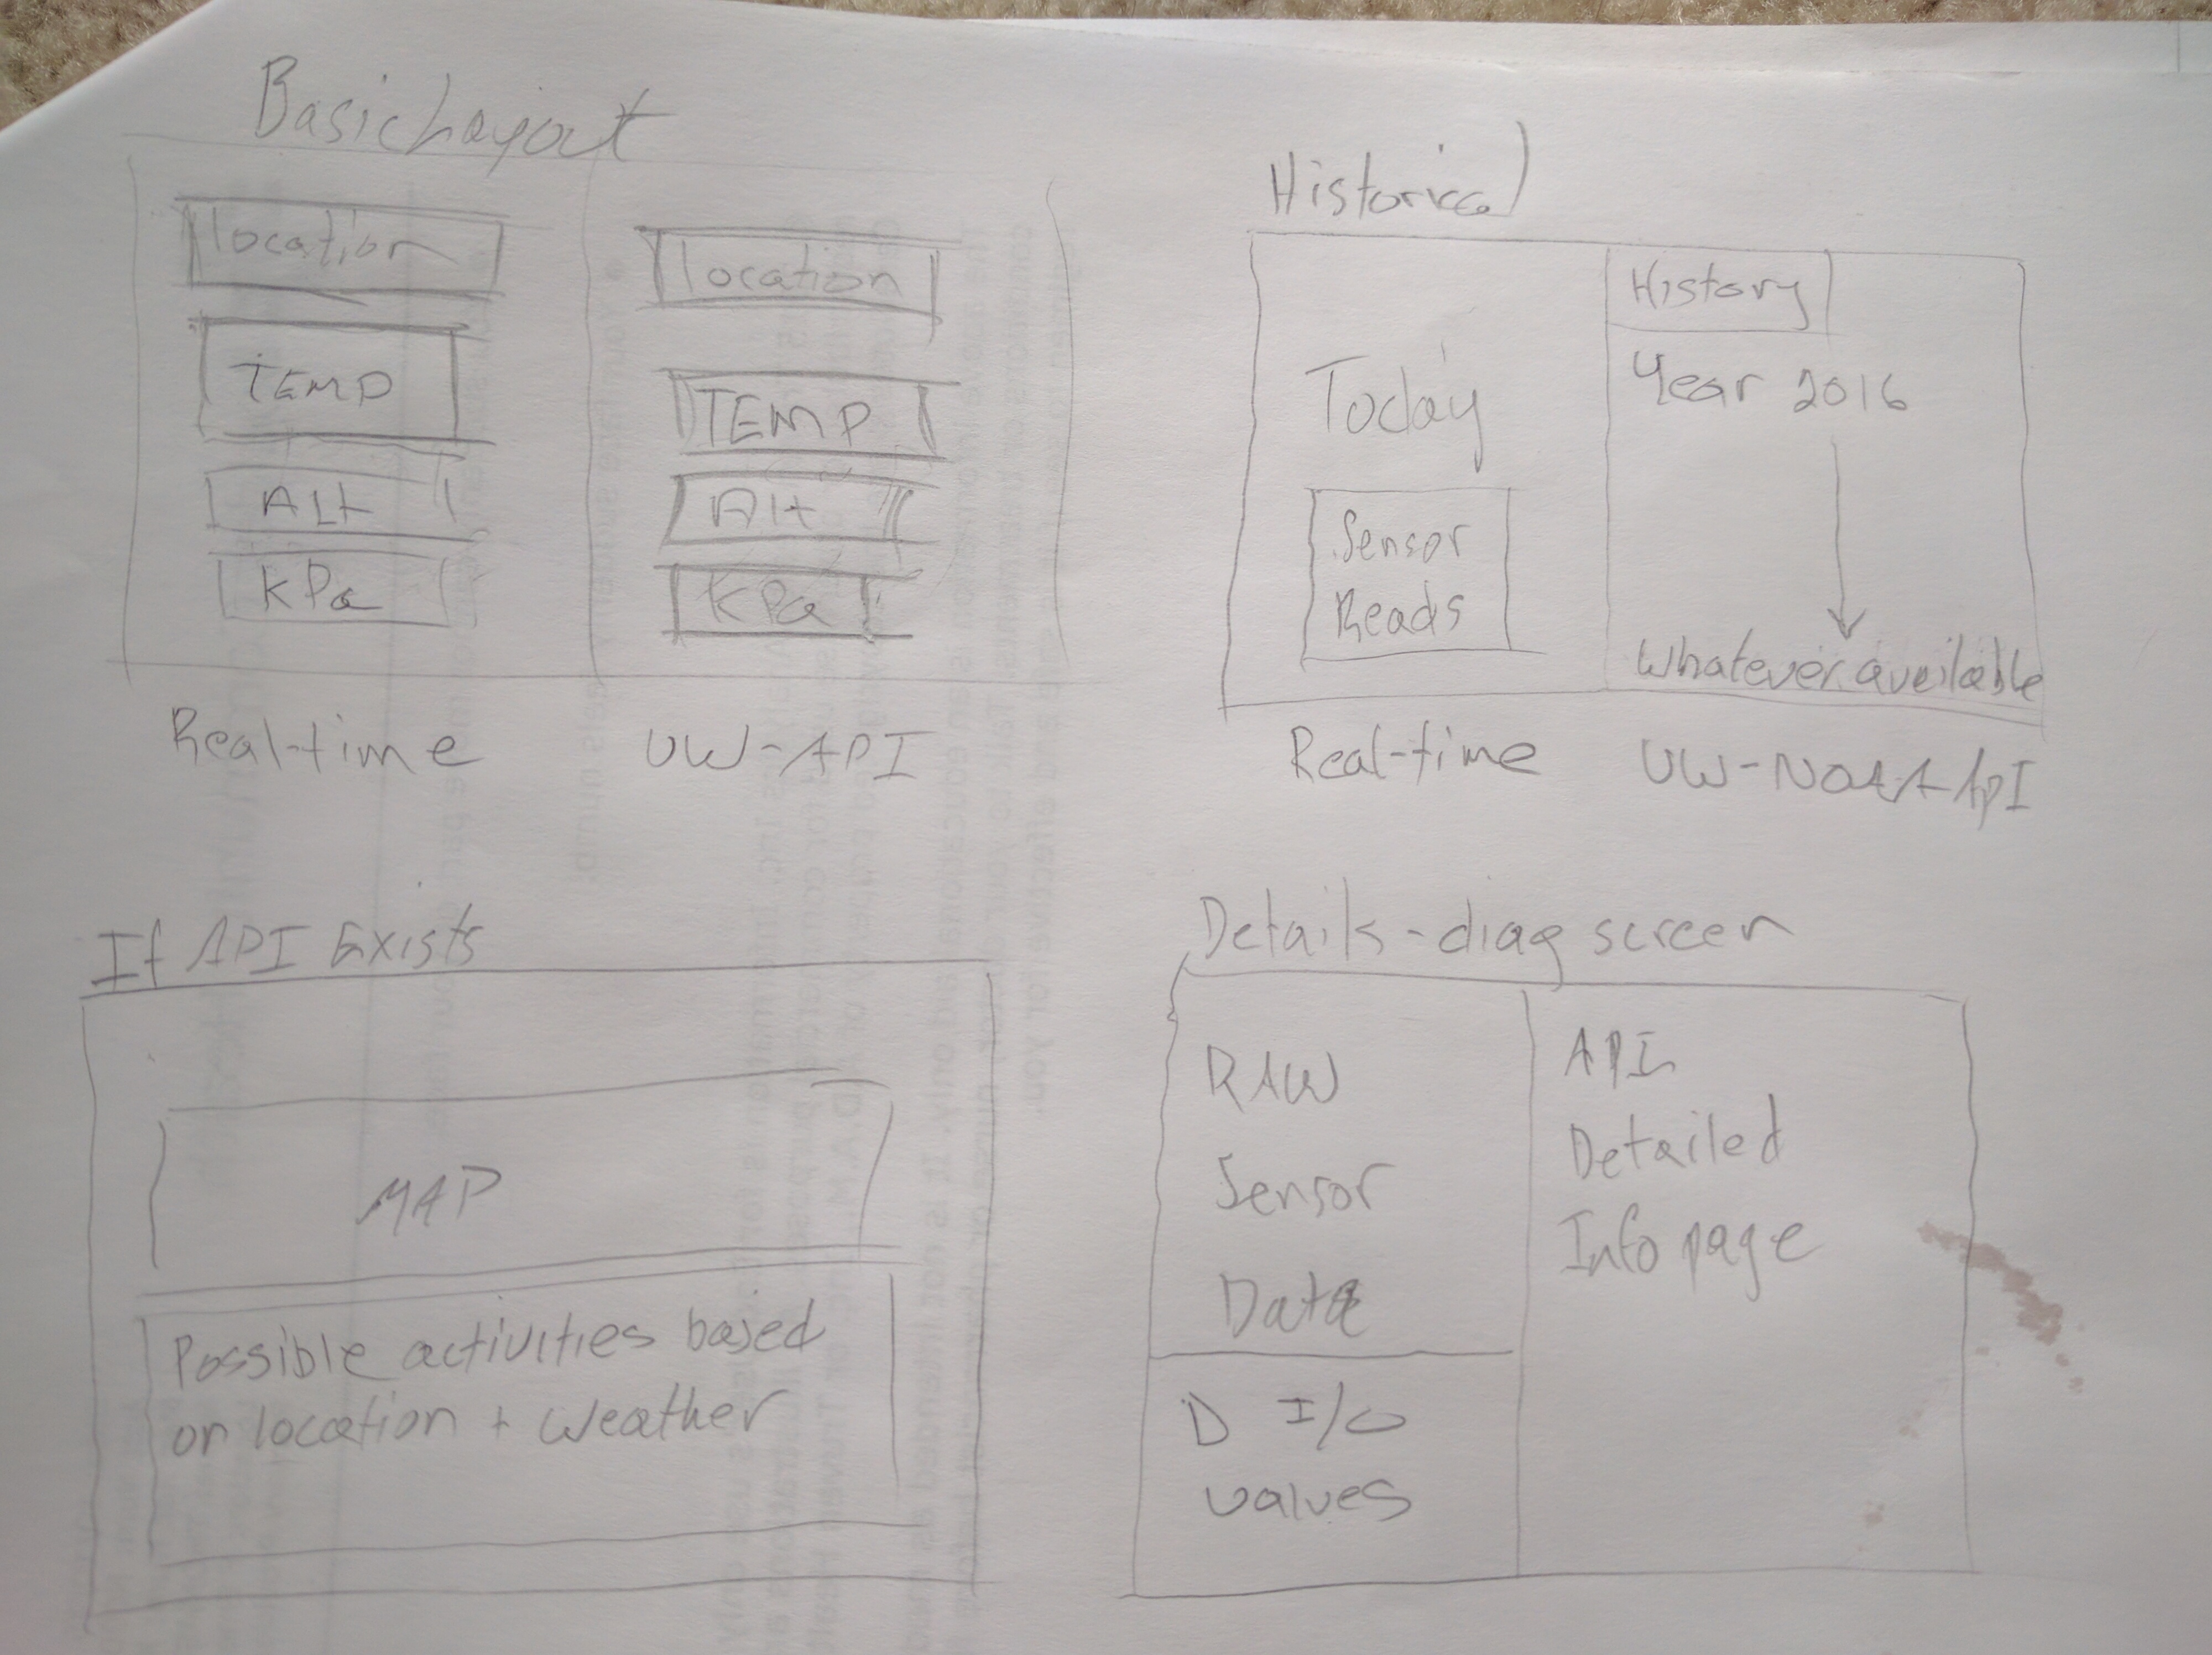 Basic Layout
location
TEMP
ALt
kPa
location
TEMP
Alt
kPa
Real-time
UW-API
Historical
Today
Sensor
Reads
History
Year 2016
Whatever available
Real-time
UW-NOAA API
If API Exists
MAP
Possible activities based
on location + weather
Details-diag screen
RAW
Sensor
Data
D I/O
values
API
Detailed
Info page